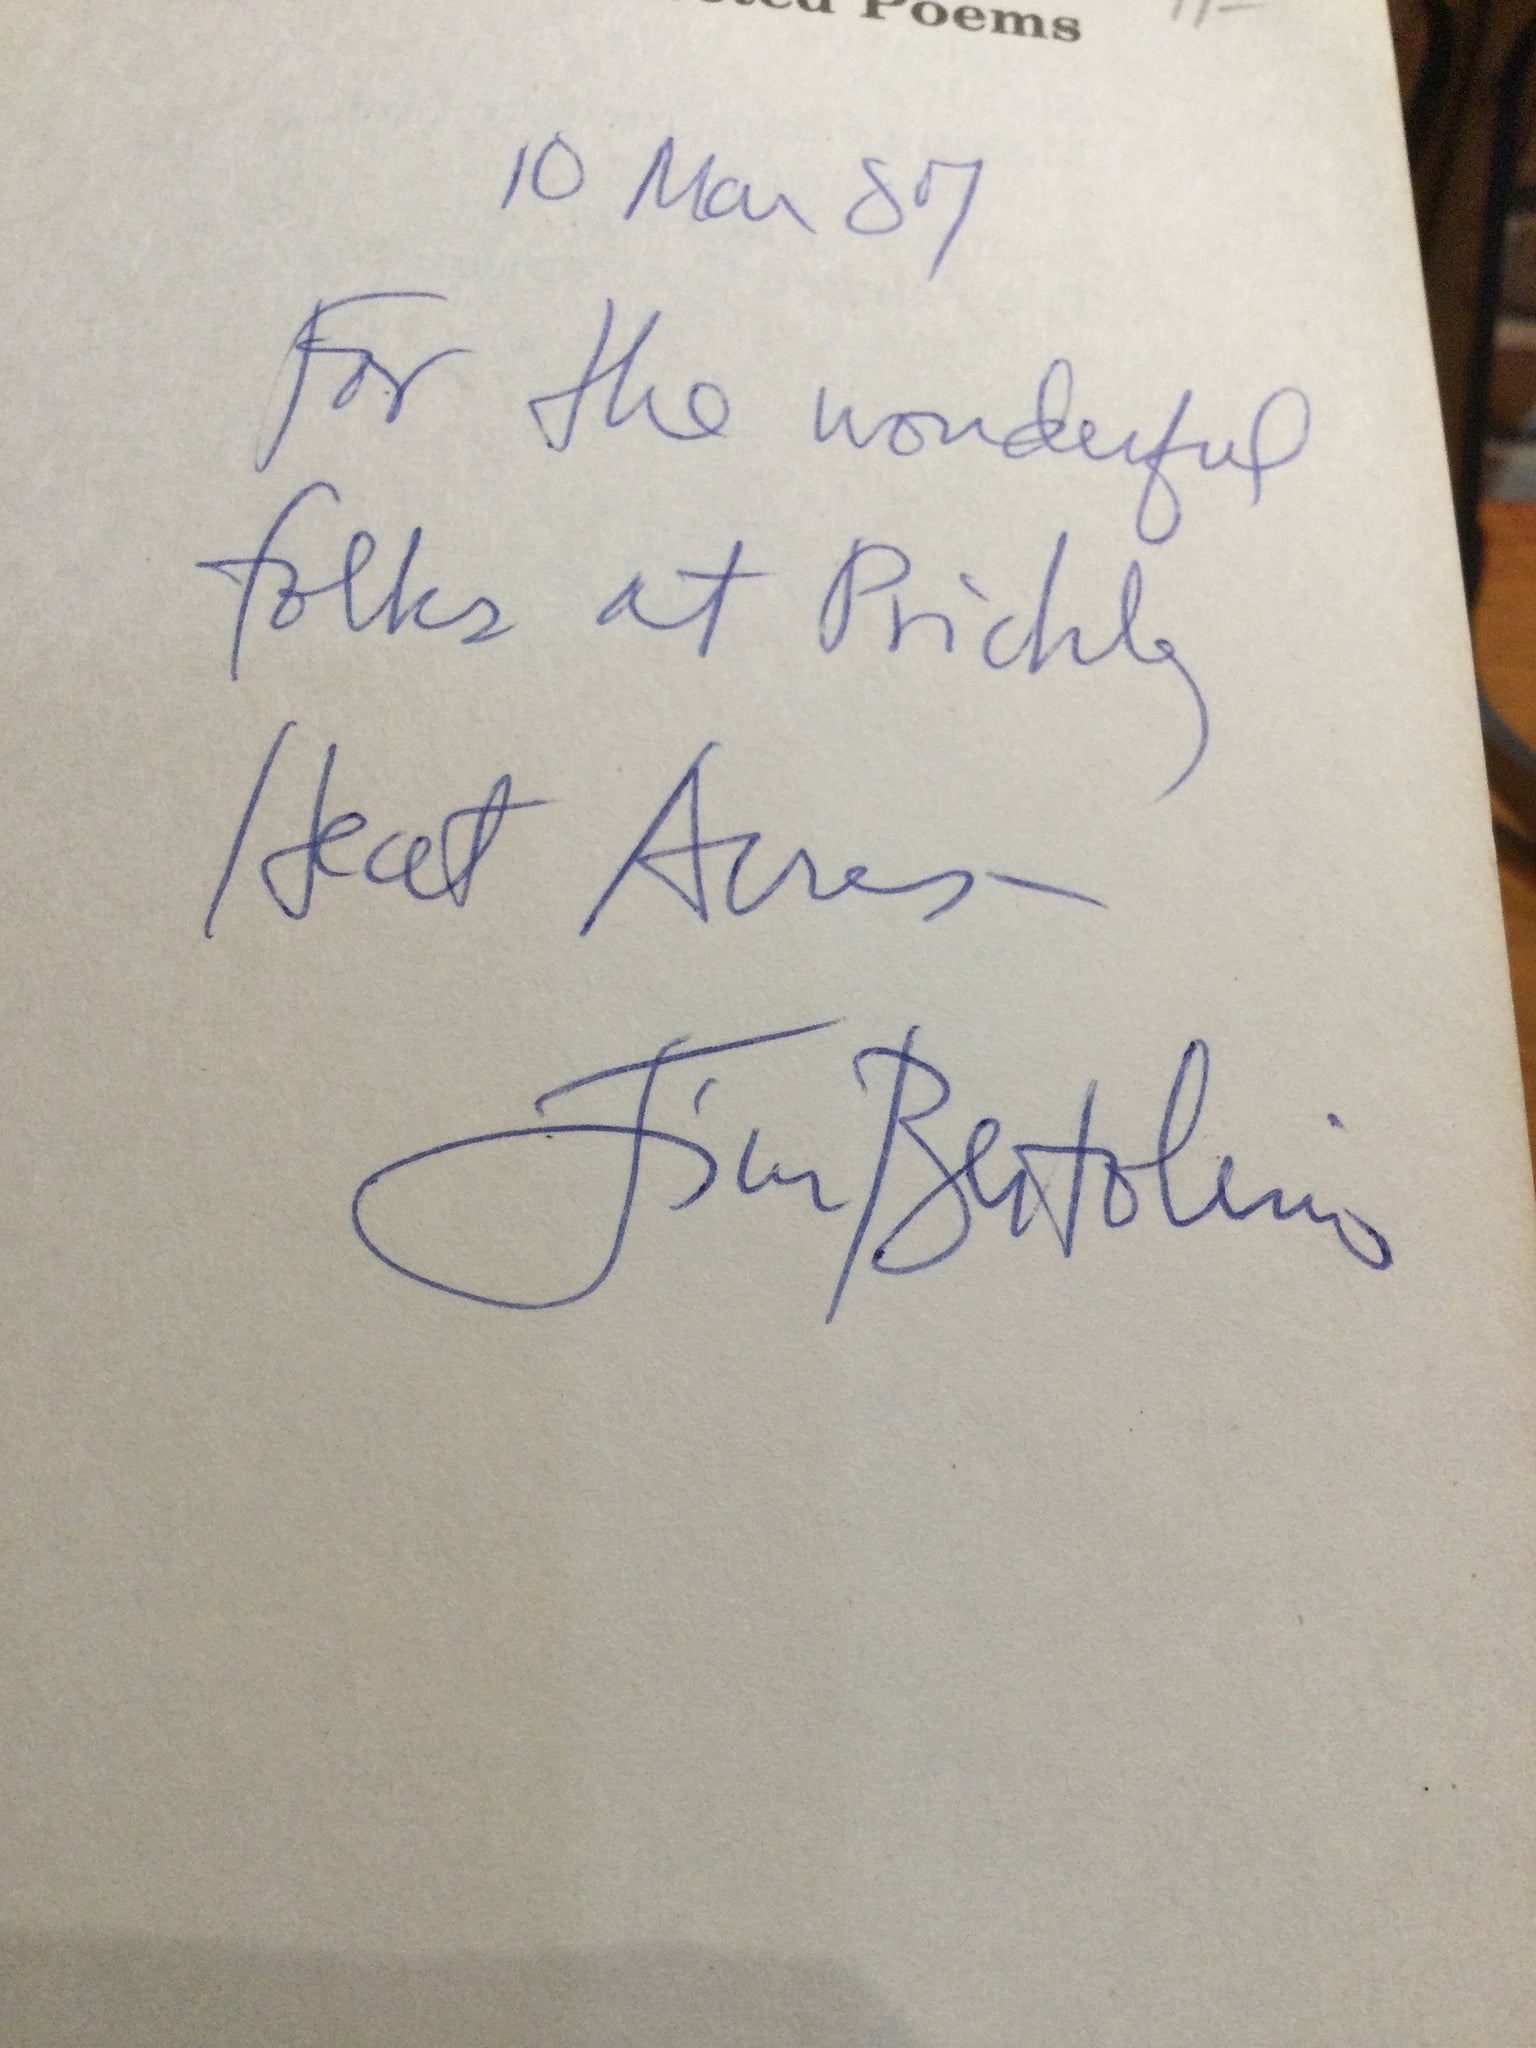 Poems
10 Mar 87
For the wonderful
folks at Prickly
Heat Acres—
Jim Bertolino